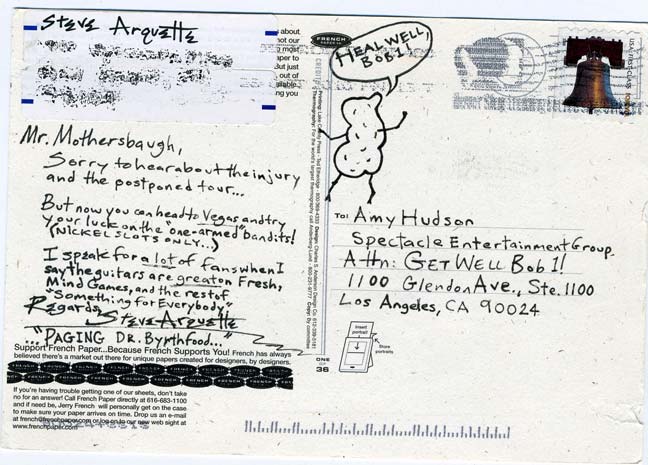 Steve Arquette
about
not our
g most
aper to
But just
out of
ailable.
ng you
FRENCH
PAPER CO.
HEAL WELL,
BOB 1!
USA FIRST-CLASS FOREVER
Mr. Mothersbaugh,
Sorry to hear about the injury
and the postponed tour...
But now you can head to Vegas and try
your luck on the "one-armed" bandits!
(NICKEL SLOTS ONLY...)
I speak for a lot of fans when I
say the guitars are great on Fresh,
Mind Games, and the rest of
"Something for Everybody"
Regards,
Steve Arquette
..."PAGING DR. Byrthfood"...
CREDITS
Printing: Lake County Press
Design: Charles S. Anderson Design Co. 612-339-5181
TO: Amy Hudson
Spectacle Entertainment Group
Attn: GET WELL Bob 1!
1100 Glendon Ave., Ste. 1100
Los Angeles, CA 90024
Insert
portrait
Store
portraits
ONE
36
Support French Paper...Because French Supports You! French has always
believed there's a market out there for unique papers created for designers, by designers.
If you're having trouble getting one of our sheets, don't take
no for an answer! Call French Paper directly at 616-683-1100
and if need be, Jerry French will personally get on the case
to make sure your paper arrives on time. Drop us an e-mail
at french@frenchpaper.com or log on to our new web sight at
www.frenchpaper.com